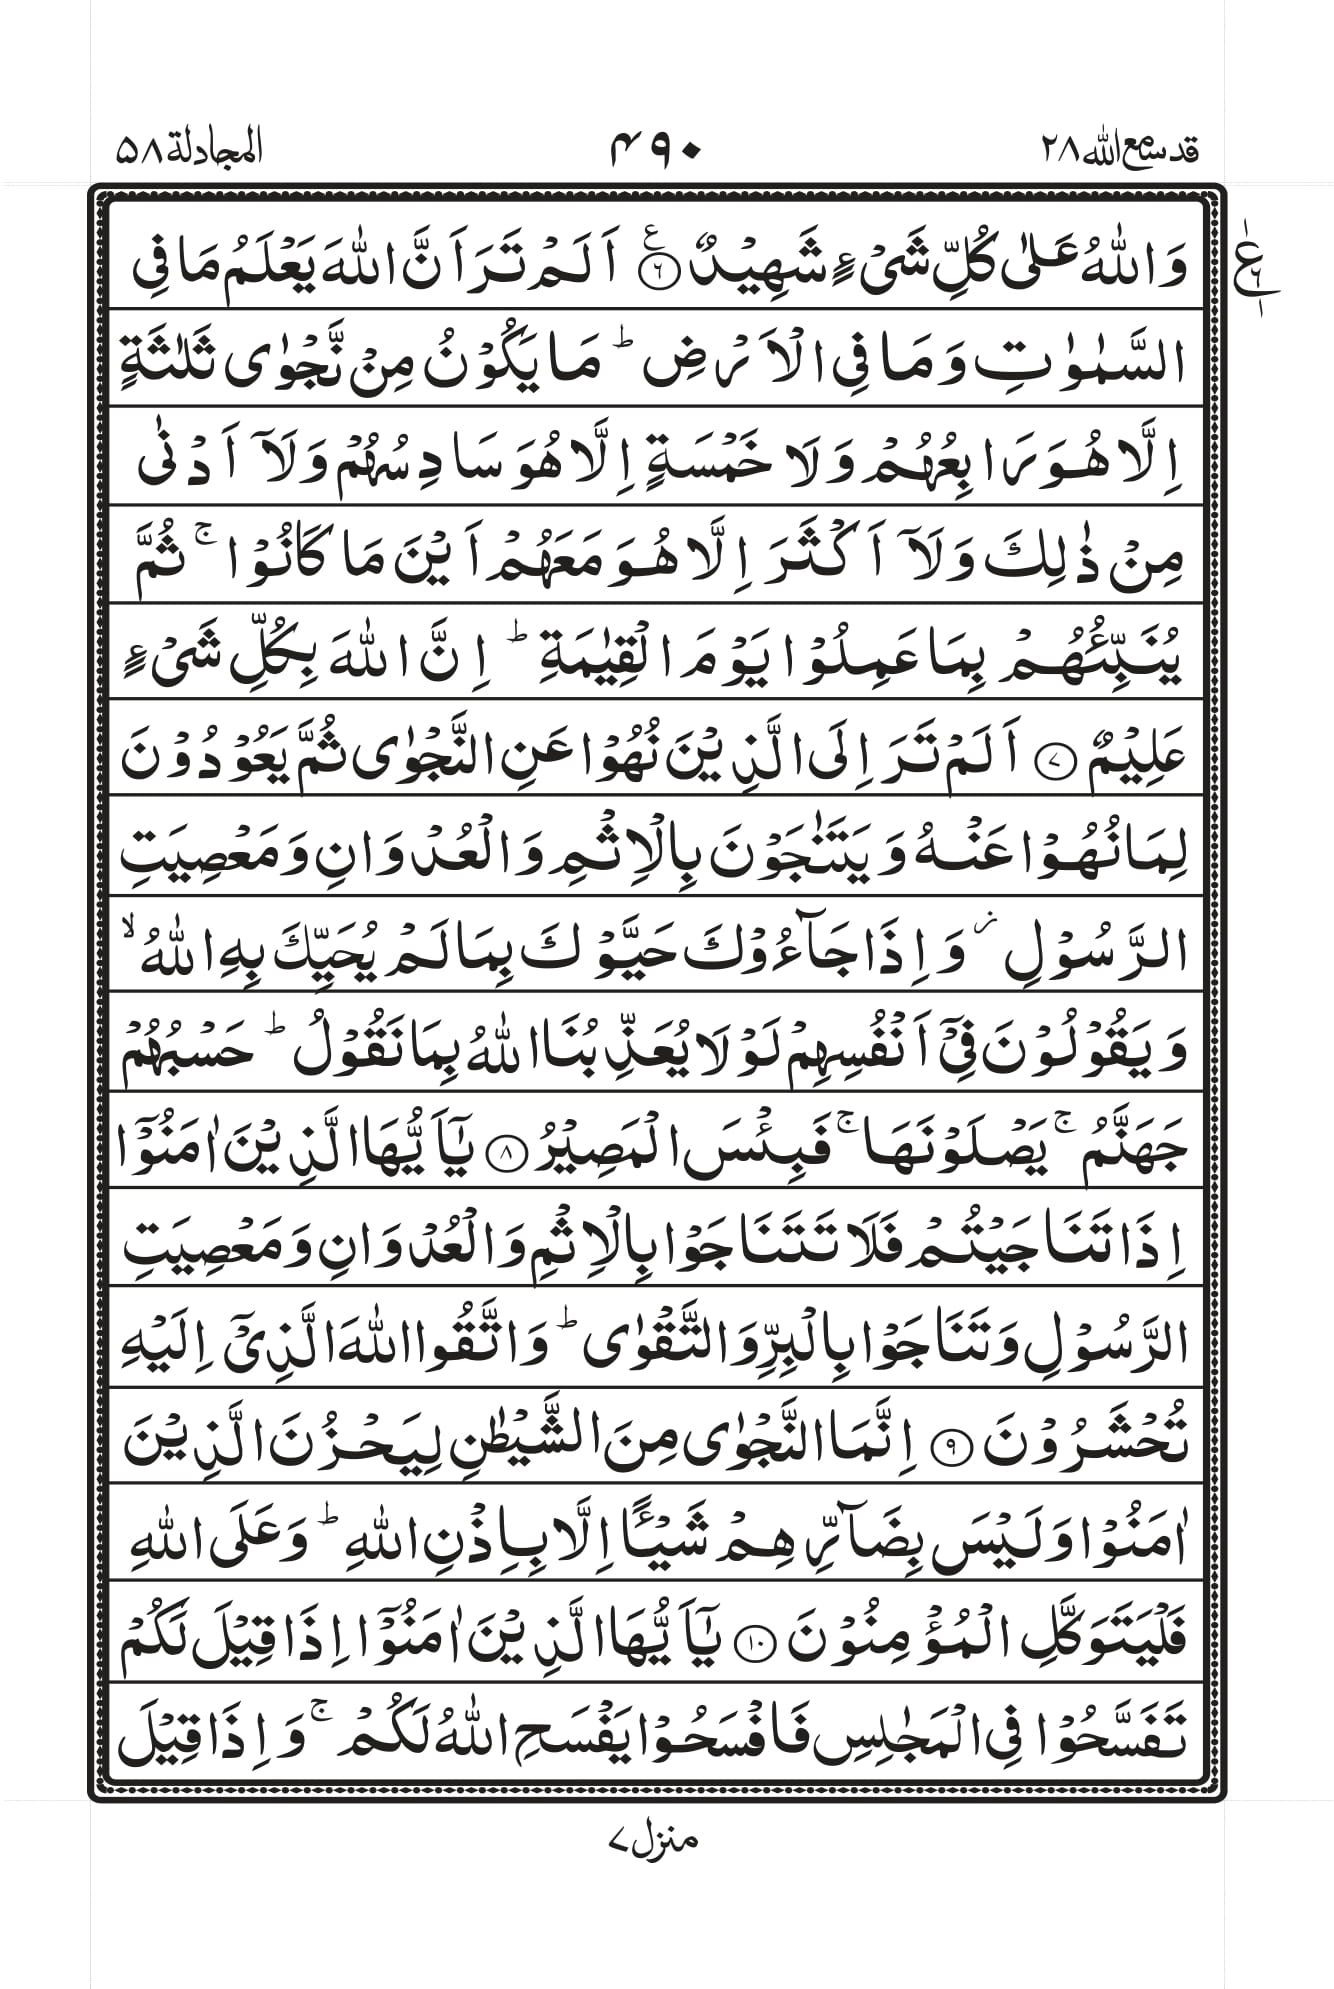 قد سمع الله ٢٨ ۴۹۰ المجادلة ۵۸
وَاللّٰهُ عَلٰى كُلِّ شَىْءٍ شَهِيْدٌ ۶ ع اَلَمْ تَرَ اَنَّ اللّٰهَ يَعْلَمُ مَا فِى
ع ۶ ١
السَّمٰوٰتِ وَمَا فِى الْاَرْضِ ؕ مَا يَكُوْنُ مِنْ نَّجْوٰى ثَلٰثَةٍ
اِلَّا هُوَ رَابِعُهُمْ وَلَا خَمْسَةٍ اِلَّا هُوَ سَادِسُهُمْ وَلَاۤ اَدْنٰى
مِنْ ذٰلِكَ وَلَاۤ اَكْثَرَ اِلَّا هُوَ مَعَهُمْ اَيْنَ مَا كَانُوْا ۚ ثُمَّ
يُنَبِّئُهُمْ بِمَا عَمِلُوْا يَوْمَ الْقِيٰمَةِ ؕ اِنَّ اللّٰهَ بِكُلِّ شَىْءٍ
عَلِيْمٌ ۷ اَلَمْ تَرَ اِلَى الَّذِيْنَ نُهُوْا عَنِ النَّجْوٰى ثُمَّ يَعُوْدُوْنَ
لِمَا نُهُوْا عَنْهُ وَيَتَنٰجَوْنَ بِالْاِثْمِ وَالْعُدْوَانِ وَمَعْصِيَتِ
الرَّسُوْلِ ز وَاِذَا جَآءُوْكَ حَيَّوْكَ بِمَا لَمْ يُحَيِّكَ بِهِ اللّٰهُ ۙ
وَيَقُوْلُوْنَ فِىْۤ اَنْفُسِهِمْ لَوْلَا يُعَذِّبُنَا اللّٰهُ بِمَا نَقُوْلُ ؕ حَسْبُهُمْ
جَهَنَّمُ ۚ يَصْلَوْنَهَا ۚ فَبِئْسَ الْمَصِيْرُ ۸ يٰۤاَيُّهَا الَّذِيْنَ اٰمَنُوْۤا
اِذَا تَنَاجَيْتُمْ فَلَا تَتَنَاجَوْا بِالْاِثْمِ وَالْعُدْوَانِ وَمَعْصِيَتِ
الرَّسُوْلِ وَتَنَاجَوْا بِالْبِرِّ وَالتَّقْوٰى ؕ وَاتَّقُوا اللّٰهَ الَّذِىْۤ اِلَيْهِ
تُحْشَرُوْنَ ۹ اِنَّمَا النَّجْوٰى مِنَ الشَّيْطٰنِ لِيَحْزُنَ الَّذِيْنَ
اٰمَنُوْا وَلَيْسَ بِضَآرِّهِمْ شَيْـًٔا اِلَّا بِاِذْنِ اللّٰهِ ؕ وَعَلَى اللّٰهِ
فَلْيَتَوَكَّلِ الْمُؤْمِنُوْنَ ۱۰ يٰۤاَيُّهَا الَّذِيْنَ اٰمَنُوْۤا اِذَا قِيْلَ لَكُمْ
تَفَسَّحُوْا فِى الْمَجٰلِسِ فَافْسَحُوْا يَفْسَحِ اللّٰهُ لَكُمْ ۚ وَاِذَا قِيْلَ
منزل ۷